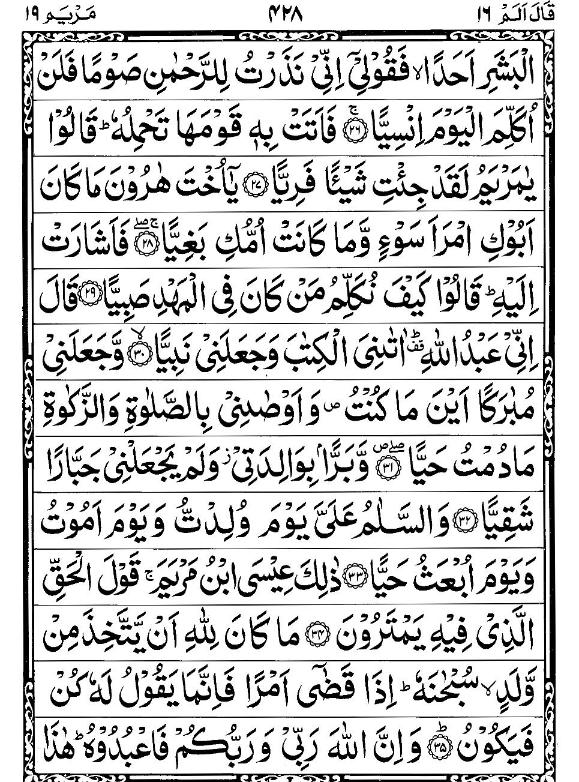 قَالَ اَلَمْ ١٦ ٤٢٨ مَرْيَم ١٩
الْبَشَرِ اَحَدًا ۙ فَقُوْلِیْۤ اِنِّیْ نَذَرْتُ لِلرَّحْمٰنِ صَوْمًا فَلَنْ
اُكَلِّمَ الْیَوْمَ اِنْسِیًّا ۚ﴿۲۶﴾ فَاَتَتْ بِهٖ قَوْمَهَا تَحْمِلُهٗ ؕ قَالُوْا
یٰمَرْیَمُ لَقَدْ جِئْتِ شَیْـًٔا فَرِیًّا ﴿۲۷﴾ یٰۤاُخْتَ هٰرُوْنَ مَا كَانَ
اَبُوْكِ امْرَاَ سَوْءٍ وَّمَا كَانَتْ اُمُّكِ بَغِیًّا ۖۚ﴿۲۸﴾ فَاَشَارَتْ
اِلَیْهِ ؕ قَالُوْا كَیْفَ نُكَلِّمُ مَنْ كَانَ فِی الْمَهْدِ صَبِیًّا ﴿۲۹﴾ قَالَ
اِنِّیْ عَبْدُ اللّٰهِ ؕ۫ اٰتٰىنِیَ الْكِتٰبَ وَجَعَلَنِیْ نَبِیًّا ۙ﴿۳۰﴾ وَّجَعَلَنِیْ
مُبٰرَكًا اَیْنَ مَا كُنْتُ ۪ وَاَوْصٰنِیْ بِالصَّلٰوةِ وَالزَّكٰوةِ
مَا دُمْتُ حَیًّا ۪ۖ﴿۳۱﴾ وَّبَرًّۢا بِوَالِدَتِیْ ؗ وَلَمْ یَجْعَلْنِیْ جَبَّارًا
شَقِیًّا ﴿۳۲﴾ وَالسَّلٰمُ عَلَیَّ یَوْمَ وُلِدْتُّ وَیَوْمَ اَمُوْتُ
وَیَوْمَ اُبْعَثُ حَیًّا ﴿۳۳﴾ ذٰلِكَ عِیْسَی ابْنُ مَرْیَمَ ۚ قَوْلَ الْحَقِّ
الَّذِیْ فِیْهِ یَمْتَرُوْنَ ﴿۳۴﴾ مَا كَانَ لِلّٰهِ اَنْ یَّتَّخِذَ مِنْ
وَّلَدٍ ۙ سُبْحٰنَهٗ ؕ اِذَا قَضٰۤی اَمْرًا فَاِنَّمَا یَقُوْلُ لَهٗ كُنْ
فَیَكُوْنُ ؕ﴿۳۵﴾ وَاِنَّ اللّٰهَ رَبِّیْ وَرَبُّكُمْ فَاعْبُدُوْهُ ؕ هٰذَا